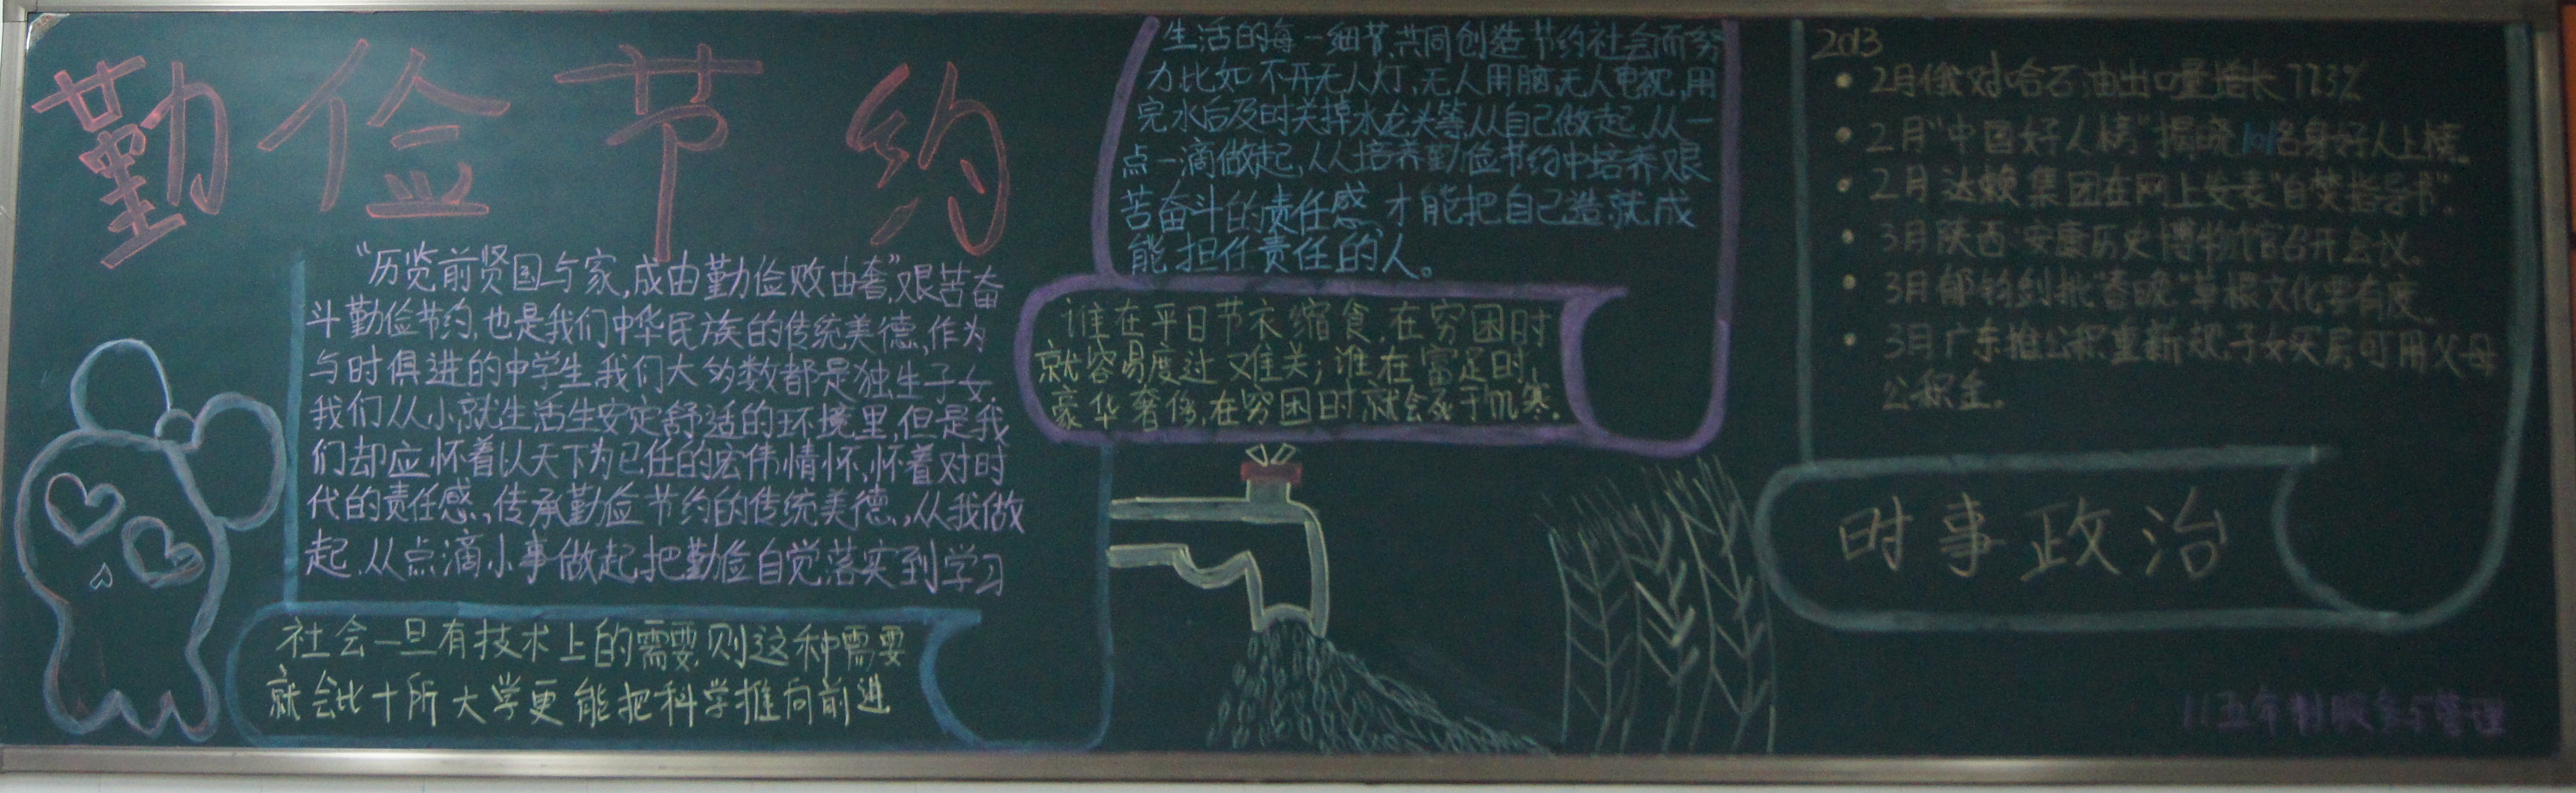 勤俭节约
“历览前贤国与家,成由勤俭败由奢”,艰苦奋
斗勤俭节约,也是我们中华民族的传统美德,作为
与时俱进的中学生我们大多数都是独生子女,
我们从小就生活生安定舒适的环境里,但是我
们却应怀着以天下为己任的宏伟情怀,怀着对时
代的责任感,传承勤俭节约的传统美德,从我做
起,从点滴小事做起把勤俭自觉落实到学习
社会一旦有技术上的需要,则这种需要
就会比十所大学更能把科学推向前进
生活的每一细节,共同创造节约社会而努
力比如不开无人灯,无人用脑,无人电视,用
完水后及时关掉水龙头等,从自己做起,从一
点一滴做起,从人培养勤俭节约中培养艰
苦奋斗的责任感,才能把自己造就成
能担任责任的人。
谁在平日节衣缩食,在穷困时
就容易度过难关;谁在富足时,
豪华奢侈,在穷困时就会死于饥寒.
2013
2月俄对哈石油出口量增长773%
2月“中国好人榜”揭晓101名身好人上榜。
2月达赖集团在网上发表“自焚指导书”。
3月陕西安康历史博物馆召开会议。
3月郁钧剑批“春晚”草根文化要有度。
3月广东推公积重新规,子女买房可用父母
公积金。
时事政治
11五年制服务与管理